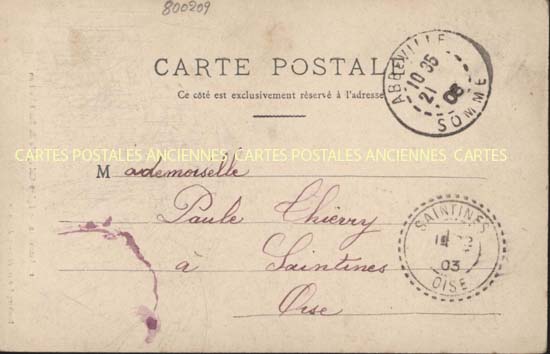 800209
CARTE POSTALE
Ce côté est exclusivement réservé à l'adresse
ABBEVILLE
10 35
21
03
SOMME
CARTES POSTALES ANCIENNES CARTES POSTALES ANCIENNES CARTES
Mademoiselle
Paule Thierry
à Saintines
Oise
SAINTINES
03
OISE